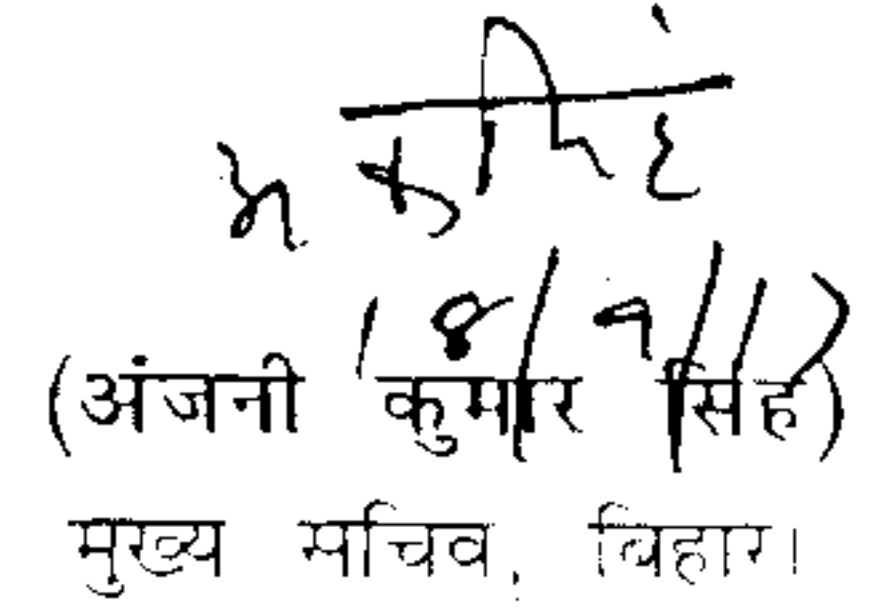 18/9/17
(अंजनी कुमार सिंह)
मुख्य सचिव, बिहार।